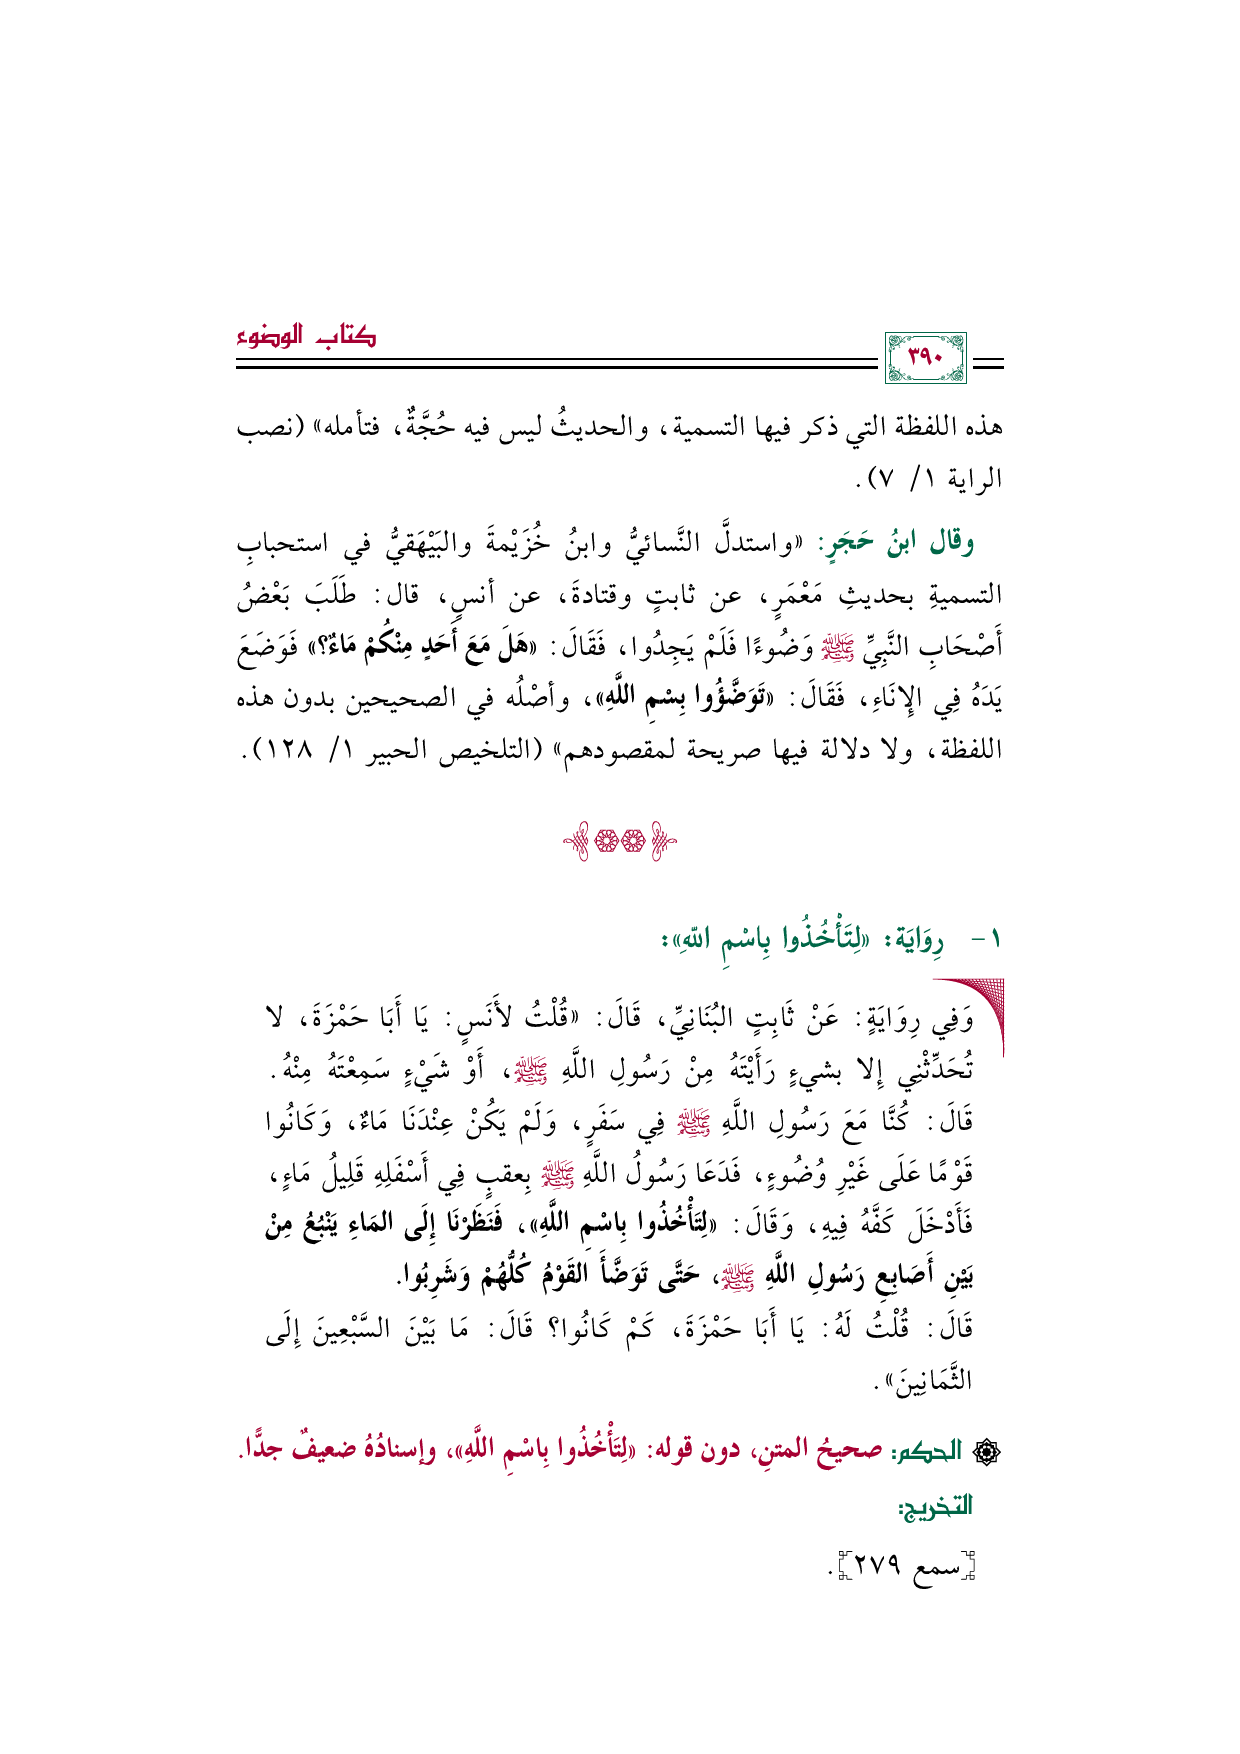 كتاب الوضوء
٣٩٠
هذه اللفظة التي ذكر فيها التسمية، والحديثُ ليس فيه حُجَّةٌ، فتأمله» (نصب
الراية ١/ ٧).
وقال ابنُ حَجَرٍ: «واستدلَّ النَّسائيُّ وابنُ خُزَيْمةَ والبَيْهَقيُّ في استحبابِ
التسميةِ بحديثِ مَعْمَرٍ، عن ثابتٍ وقتادةَ، عن أنسٍ، قال: طَلَبَ بَعْضُ
أَصْحَابِ النَّبِيِّ ﷺ وَضُوءًا فَلَمْ يَجِدُوا، فَقَالَ: «هَلَ مَعَ أَحَدٍ مِنْكُمْ مَاءٌ؟» فَوَضَعَ
يَدَهُ فِي الإِنَاءِ، فَقَالَ: «تَوَضَّؤُوا بِسْمِ اللَّهِ»، وأصْلُه في الصحيحين بدون هذه
اللفظة، ولا دلالة فيها صريحة لمقصودهم» (التلخيص الحبير ١/ ١٢٨).
١- رِوَايَة: «لِتَأْخُذُوا بِاسْمِ اللهِ»:
وَفِي رِوَايَةٍ: عَنْ ثَابِتٍ البُنَانِيِّ، قَالَ: «قُلْتُ لأَنَسٍ: يَا أَبَا حَمْزَةَ، لا
تُحَدِّثْنِي إِلا بشيءٍ رَأَيْتَهُ مِنْ رَسُولِ اللَّهِ ﷺ، أَوْ شَيْءٍ سَمِعْتَهُ مِنْهُ.
قَالَ: كُنَّا مَعَ رَسُولِ اللَّهِ ﷺ فِي سَفَرٍ، وَلَمْ يَكُنْ عِنْدَنَا مَاءٌ، وَكَانُوا
قَوْمًا عَلَى غَيْرِ وُضُوءٍ، فَدَعَا رَسُولُ اللَّهِ ﷺ بِعقبٍ فِي أَسْفَلِهِ قَلِيلُ مَاءٍ،
فَأَدْخَلَ كَفَّهُ فِيهِ، وَقَالَ: «لِتَأْخُذُوا بِاسْمِ اللَّهِ»، فَنَظَرْنَا إِلَى المَاءِ يَنْبُعُ مِنْ
بَيْنِ أَصَابِعِ رَسُولِ اللَّهِ ﷺ، حَتَّى تَوَضَّأَ القَوْمُ كُلُّهُمْ وَشَرِبُوا.
قَالَ: قُلْتُ لَهُ: يَا أَبَا حَمْزَةَ، كَمْ كَانُوا؟ قَالَ: مَا بَيْنَ السَّبْعِينَ إِلَى
الثَّمَانِينَ».
الحكم: صحيحُ المتنِ، دون قوله: «لِتَأْخُذُوا بِاسْمِ اللَّهِ»، وإسنادُهُ ضعيفٌ جدًّا.
التخريج:
[سمع ٢٧٩].